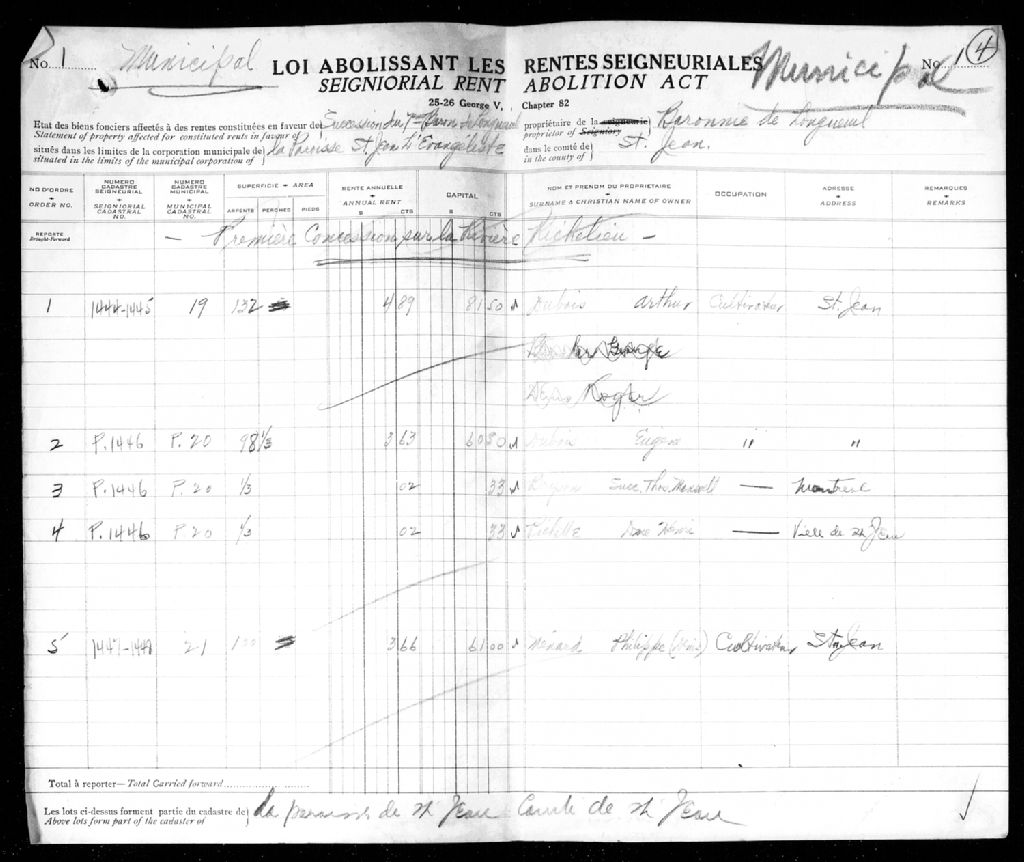 No. 1 Municipal LOI ABOLISSANT LES RENTES SEIGNEURIALES Municipal No. 1 4
SEIGNIORIAL RENT ABOLITION ACT
25-26 George V, Chapter 82
Etat des biens fonciers affectés à des rentes constituées en faveur de Succession du 7me Baron de Longueuil propriétaire de la seigneurie Baronnie de Longueuil
Statement of property affected for constituted rents in favour of proprietor of Seigniory
situés dans les limites de la corporation municipale de la Paroisse St. Jean L'Evangeliste dans le comté de St. Jean.
situated in the limits of the municipal corporation of in the county of
NO D'ORDRE NUMÉRO CADASTRE SEIGNEURIAL NUMÉRO CADASTRE MUNICIPAL SUPERFICIE — AREA RENTE ANNUELLE CAPITAL NOM ET PRÉNOM DU PROPRIÉTAIRE OCCUPATION ADRESSE REMARQUES
ORDER NO. SEIGNIORIAL CADASTRAL NO. MUNICIPAL CADASTRAL NO. ARPENTS PERCHES PIEDS ANNUAL RENT $ CTS $ CTS SURNAME & CHRISTIAN NAME OF OWNER ADDRESS REMARKS
REPORTÉ
Brought-Forward
— Première Concession sur la Rivière Richelieu —
1 1444-1445 19 132 4 89 81 50 Dubois Arthur Cultivateur St. Jean
2 P. 1446 P. 20 98 1/3 3 63 60 50 Dubois Eugène " "
3 P. 1446 P. 20 1/3 02 33 Succ. Thos. — Montreal
4 P. 1446 P. 20 1/3 02 33 Dame — Ville de St Jean
5 21 3 66 61 00 Ménard Philippe Cultivateur St Jean
Total à reporter—Total Carried forward
Les lots ci-dessus forment partie du cadastre de la paroisse de St Jean Comté de St Jean
Above lots form part of the cadaster of